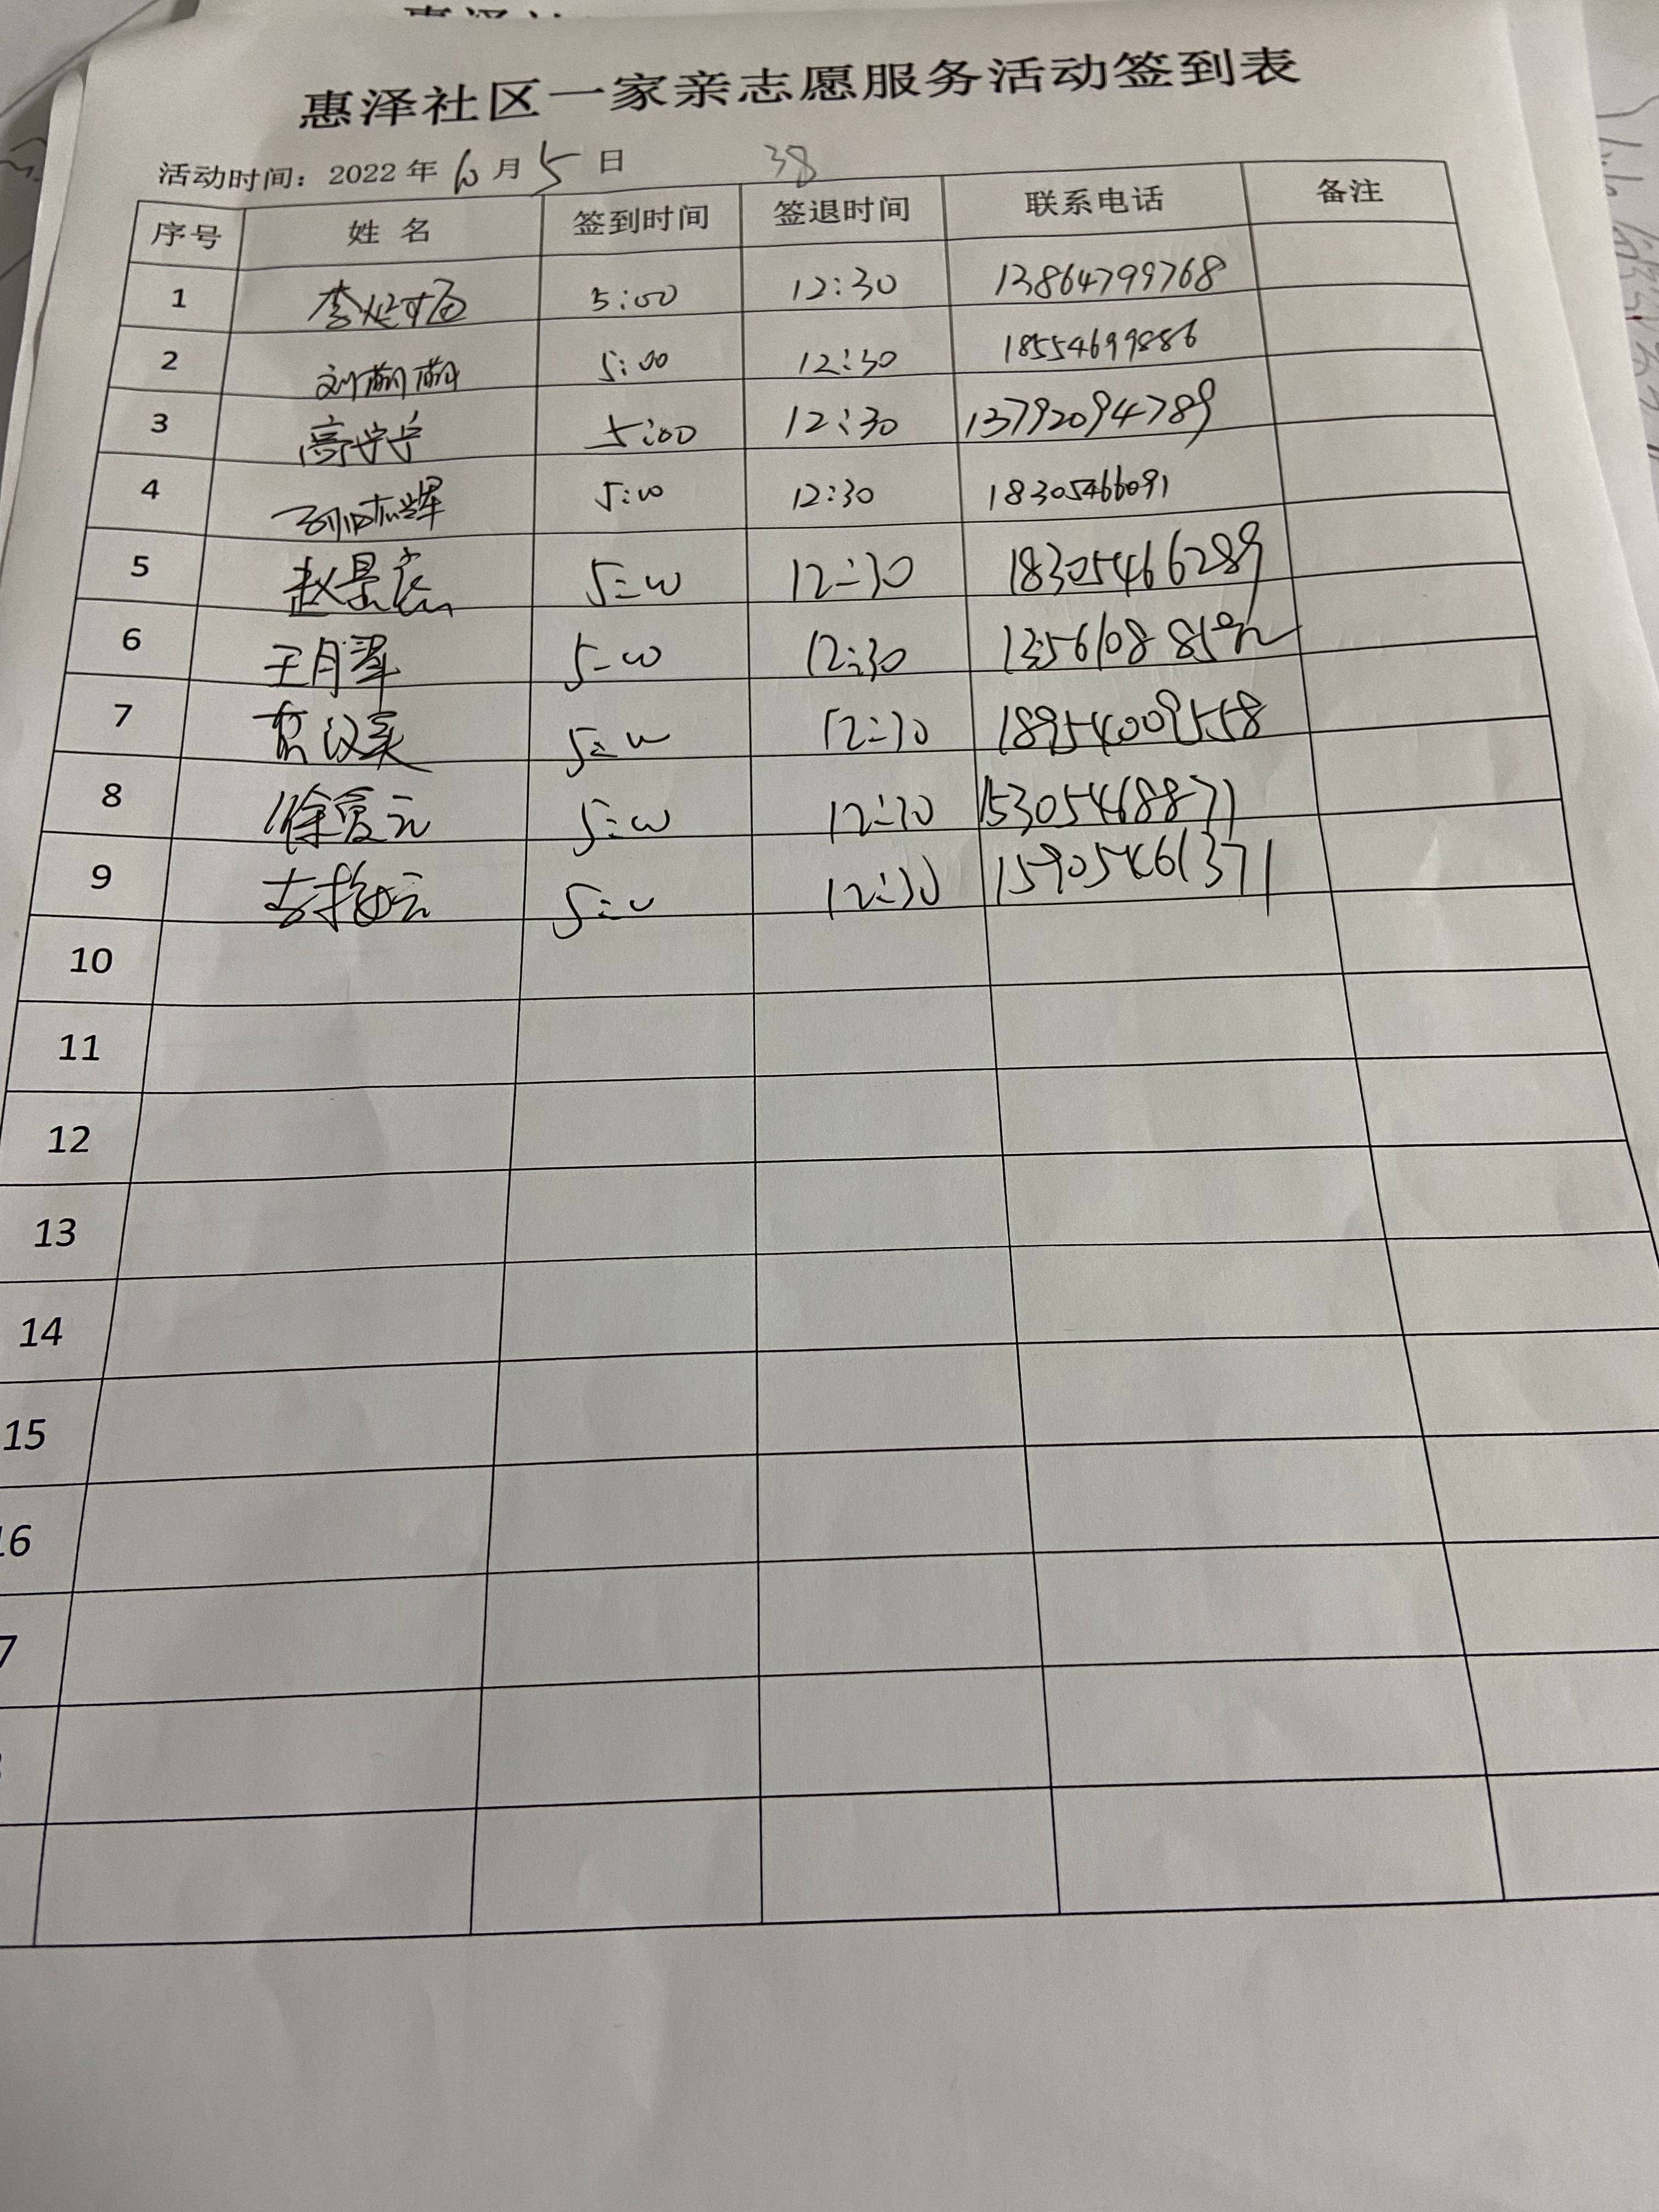 惠泽社区一家亲志愿服务活动签到表
活动时间：2022年10月5日 38
序号 姓名 签到时间 签退时间 联系电话 备注
1 5:00 12:30 13864799768
2 刘萌萌 5:00 12:30 18554699886
3 高宁宁 5:00 12:30 13792094789
4 5:00 12:30 18305466091
5 赵景 5:00 12:30 18305466289
6 王月 5:00 12:30
7 5:00 12:30 18954009558
8 徐爱元 5:00 12:30 15305468871
9 5:00 12:30 15905461371
10
11
12
13
14
15
16
7